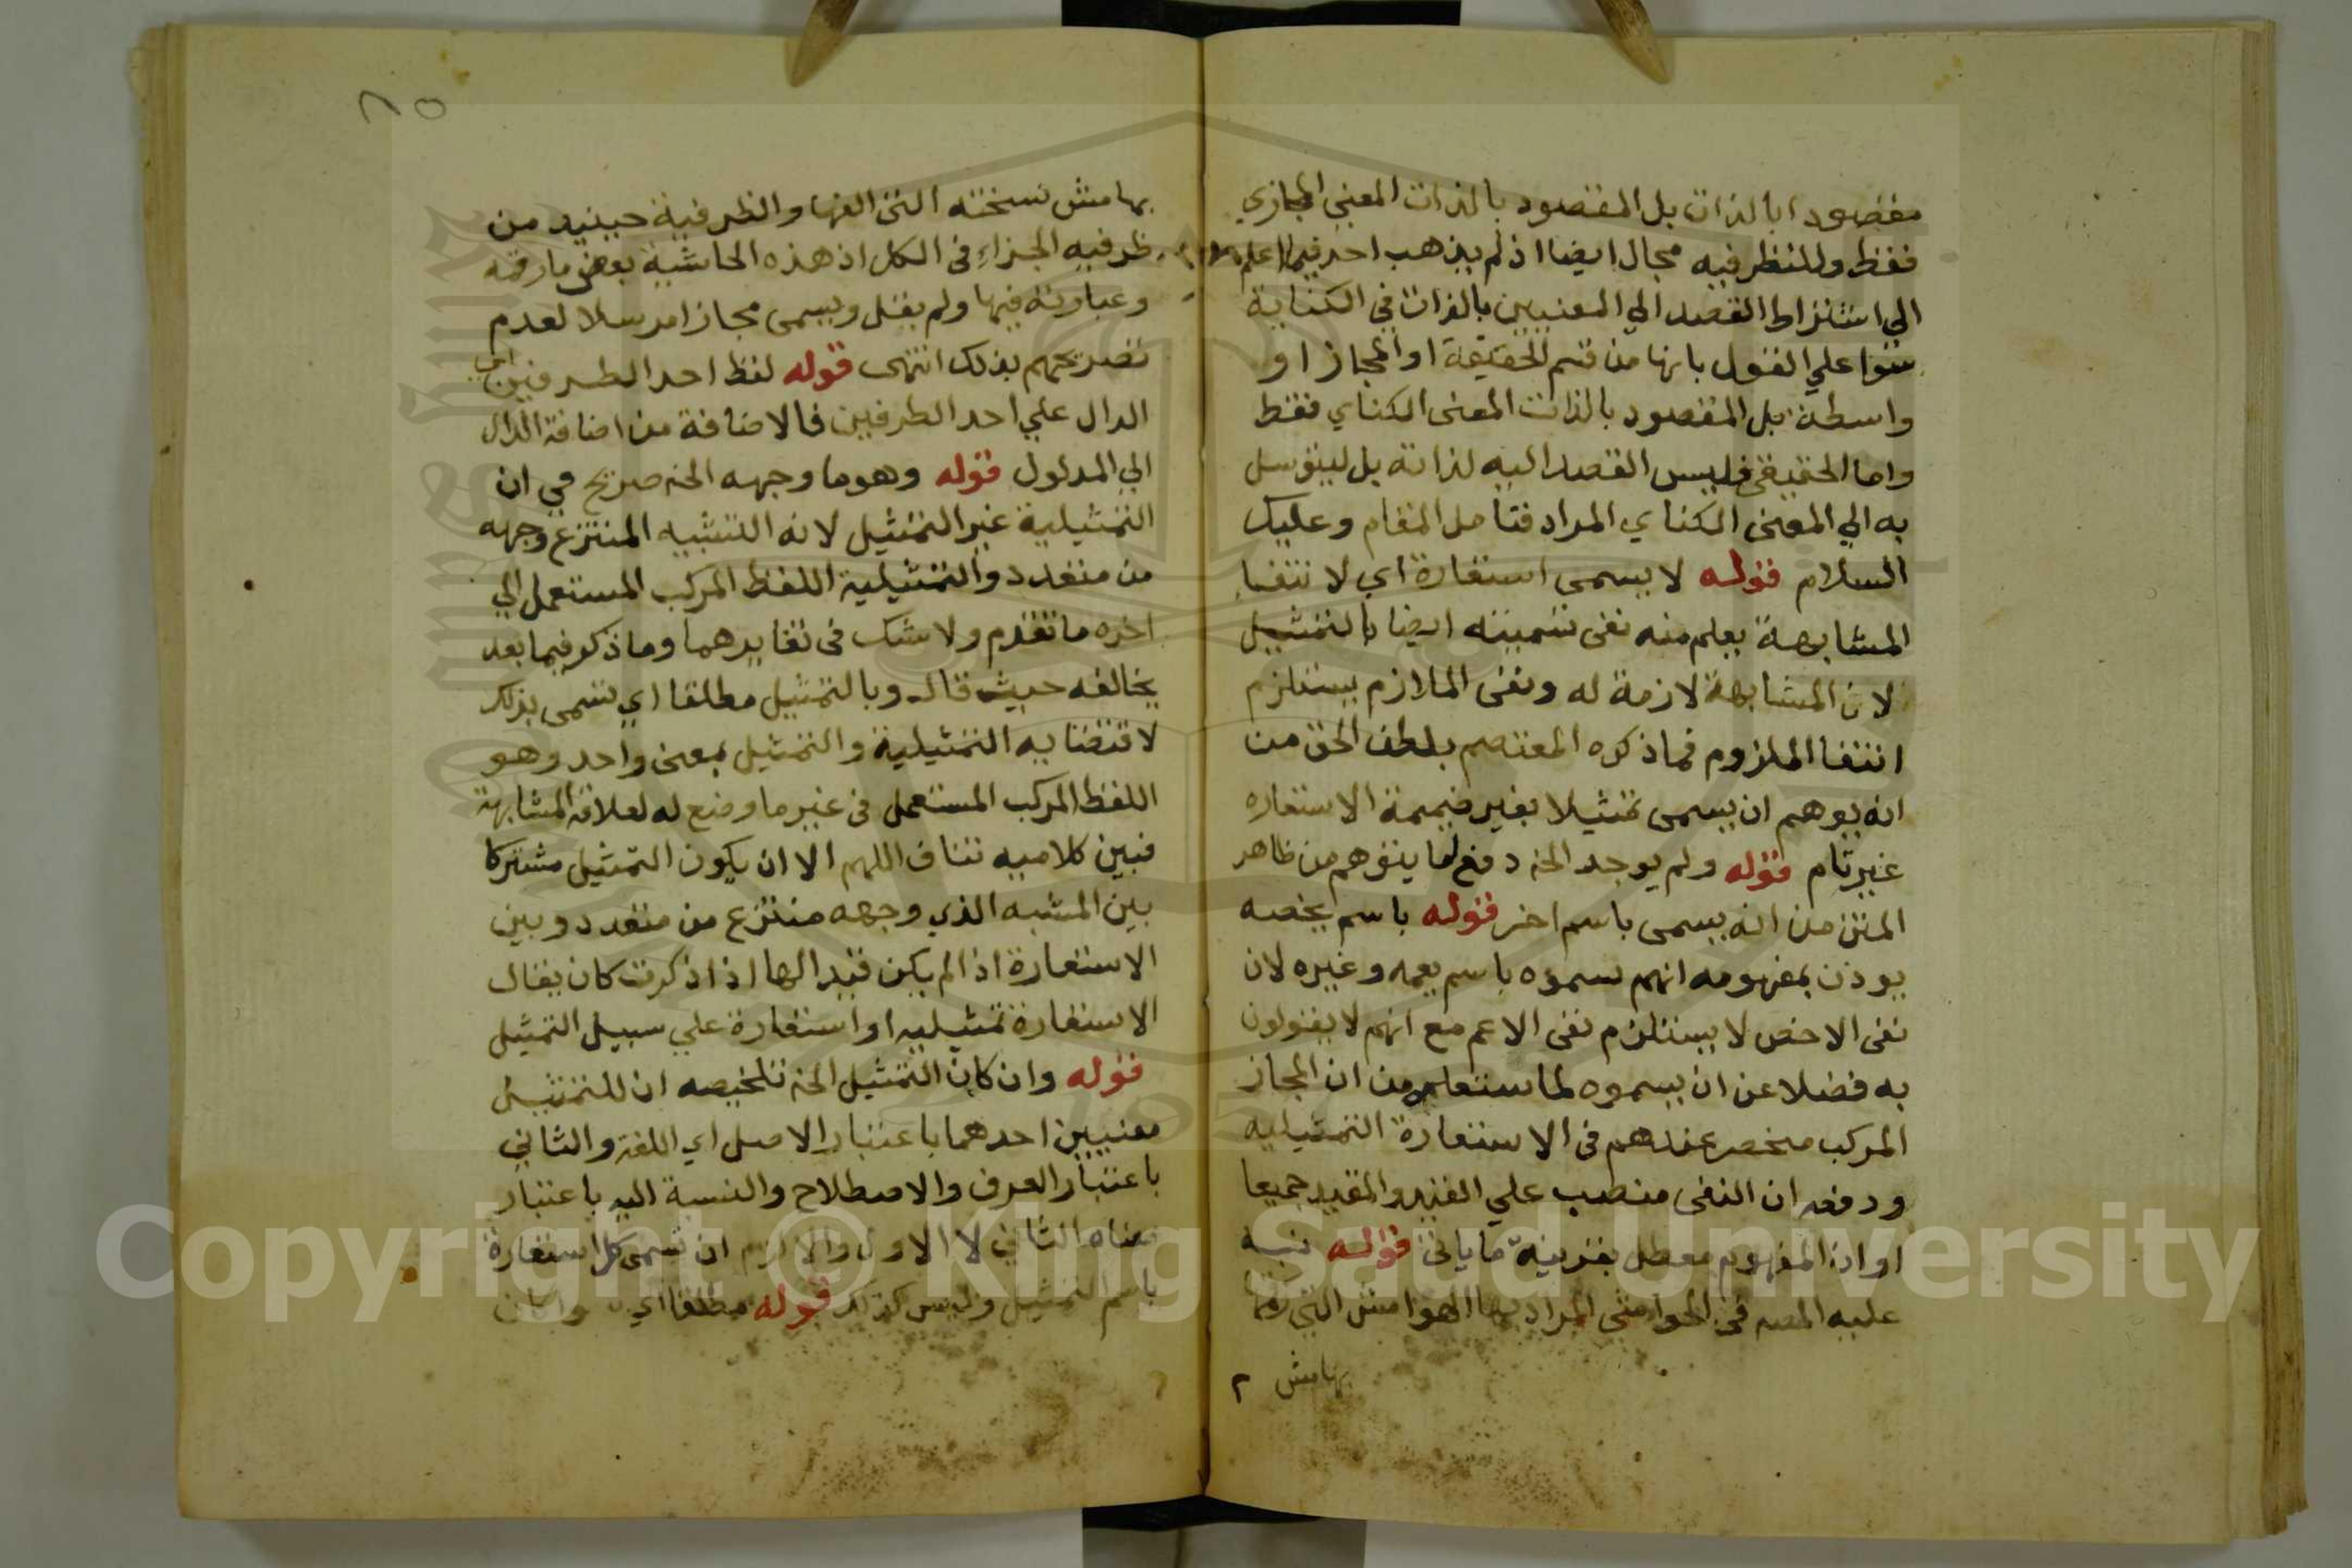 مقصودا بالذات بل المقصود بالذات المعنى المجازي
فقط وللنظر فيه مجال ايضا اذ لم يذهب احد فيما اعلم
الي اشتراط القصد الي المعنيين بالذات في الكناية
سوا علي القول بانها من قسم الحقيقة او المجاز او
واسطة بل المقصود بالذات المعنى الكناي فقط
واما الحقيقى فليس القصد اليه لذاته بل ليتوسل
به الي المعنى الكناي المراد فتامل المقام وعليك
السلام قوله لا يسمى استعارة اي لانتفاء
المشابهة يعلم منه نفى تسميته ايضا بالتمثيل
لان المشابهة لازمة له ونفى اللازم يستلزم
انتفا الملزوم فما ذكره المعتصم بلطف الحق من
انه يوهم ان يسمى تمثيلا بغير ضميمة الاستعاره
غير تام قوله ولم يوجد الخ دفع لما يتوهم من ظاهر
المتن من انه يسمى باسم اخر قوله باسم يخصه
يوذن بمفهومه انهم سموه باسم يعمه وغيره لان
نفى الاخص لا يستلزم نفى الاعم مع انهم لا يقولون
به فضلا عن ان يسموه لما ستعلم من ان المجاز
المركب منحصر عندهم فى الاستعارة التمثيليه
ودفعه ان النفى منصب علي القيد والمقيد جميعا
او ان المفهوم معطل بقرينة ما ياتى قوله نبه
عليه المصـ في الحواشى المراد بها الهوامش التي رقمها
بهامش
٨٥
بهامش نسخته التى الفها والظرفية حينيد من
ظرفيه الجزاء فى الكل اذ هذه الحاشية بعض ما رقمه
وعبارته فيها ولم يقل ويسمى مجازا مرسلا لعدم
تصريحهم بذلك انتهى قوله لفظ احد الطرفين اي
الدال علي احد الطرفين فالاضافة من اضافة الدال
الي المدلول قوله وهو ما وجهه الخ صريح في ان
التمثيلية غير التمثيل لانه التشبيه المنتزع وجهه
من متعدد والتمثيلية اللفظ المركب المستعمل الي
اخره ما تقدم ولا شك فى تغايرهما وما ذكر فيما بعد
يخالفه حيث قال وبالتمثيل مطلقا اي تسمى بذلك
لاقتضايه التمثيلية والتمثيل بمعنى واحد وهو
اللفظ المركب المستعمل فى غير ما وضع له لعلاقة المشابهة
فبين كلاميه تناف اللهم الا ان يكون التمثيل مشتركا
بين المشبه الذي وجهه منتزع من متعدد وبين
الاستعارة اذا لم يكن قيدا لها اذا ذكرت كان يقال
الاستعارة تمثيليه او استعارة علي سبيل التمثيل
قوله وان كان التمثيل الخ تلخيصه ان للتمثيل
معنيين احدهما باعتبار الاصل اي اللغة والثاني
باعتبار العرف والاصطلاح والنسبة اليه باعتبار
معناه الثاني لا الاول والا لزم ان تسمى كل استعارة
باسم التمثيل وليس كذلك قوله مطلقا اي
Copyright © King Saud University